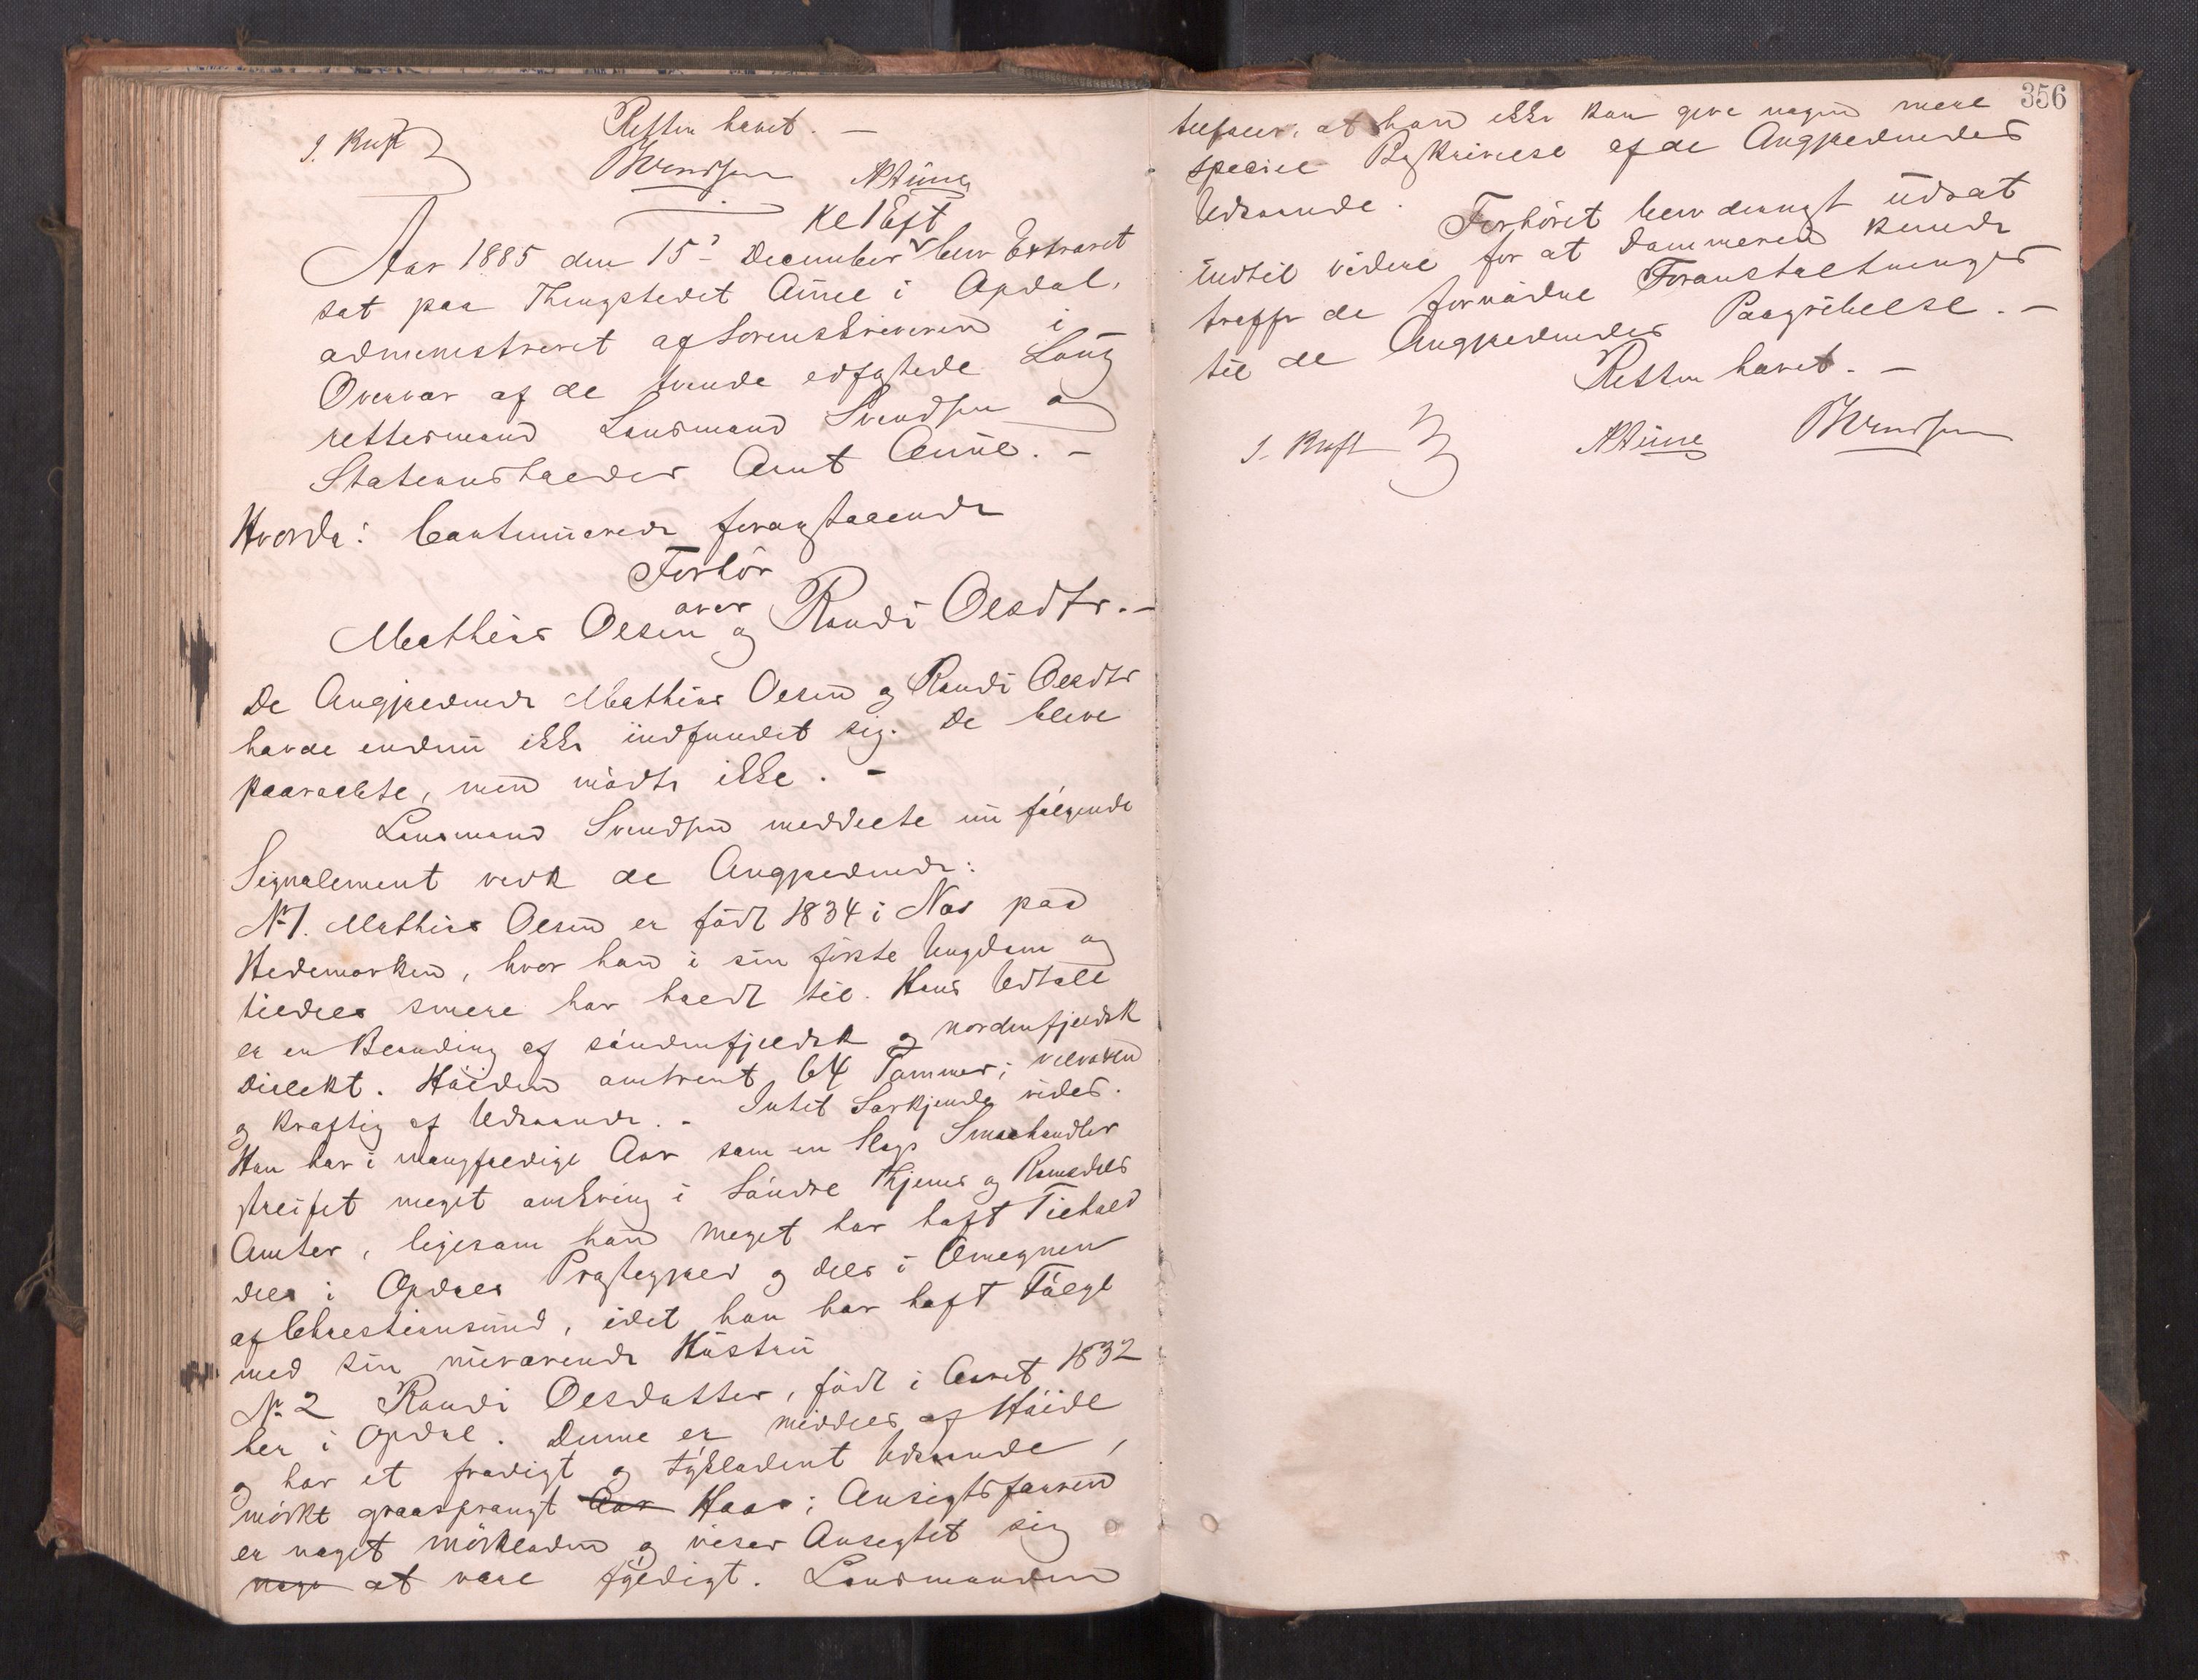 Retten hævet. —
J. Rust
BSvendsen
Kl 1 Eft
Aar 1885 den 15de December blev Extraret
sat paa Thingstedet Aune i Opdal,
administreret af Sorenskriveren i
Overvær af de tvende edfæstede Laug
rettesmænd Lensmand Svendsen og
Stationsholder Arnt Aune. –
Hvorda: Continueredes foranstaaende
Forhør
over
Mathias Olsen og Randi Olsdtr. –
De Angjældende Mathias Olsen og Randi Olsdtr
havde endnu ikke indfundet sig. De bleve
paaraabte, men mødte ikke. –
Lensmand Svendsen meddelte nu følgende
Signalement vedk de Angjældende:
No 1. Mathias Olsen er født 1834 i Næs paa
Hedemarken, hvor han i sin første Ungdom og
tildels senere har holdt til. Hans Udtale
er en Blanding af søndenfjeldsk og nordenfjeldsk
Dialekt. Høiden omtrent 64 Tommer; velvoxen
og kraftig af Udseende. – Intet Særkjende vides.
Han har i mangfoldige Aar som en Slags Smaahandler
streifet meget omkring i Søndre Thjems og Romsdals
Amter, ligesom han meget har havt Tilhold
dels i Opdals Præstegjæld og dels i Omegnen
af Christiansund, idet han har havt Følge
med sin nuværende Hustru
No 2 Randi Olsdatter, født i Aaret 1832
her i Opdal. Denne er middels af Høide
og har et frodigt og tykladent Udseende,
mørkt graasprængt Aar Haar; Ansigtsfarven
er noget mørkladen og viser Ansigtet sig
noget at være fyldigt. Lensmanden
356
tilføier, at han ikke kan give nogen mere
speciel Beskrivelse af de Angjældendes
Udseende.
Forhøret blev derngst udsat
indtil videre for at Dommeren kunde
træffe de fornødne Foranstaltninger
til de Angjældendes Paagribelse. –
Retten hævet. –
J. Rust
AAune
BSvendsen